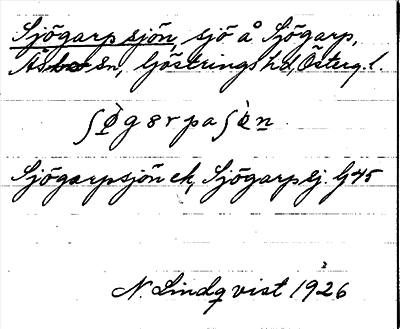 Sjögarpsjön, sjö å Sjögarp,
Åsbo sn, Göstrings hd, Österg. l.
ʃø̀gɐrpaʃø̀n
Sjögarpsjön ek, Sjögarpsj. G45
N. Lindqvist 1926